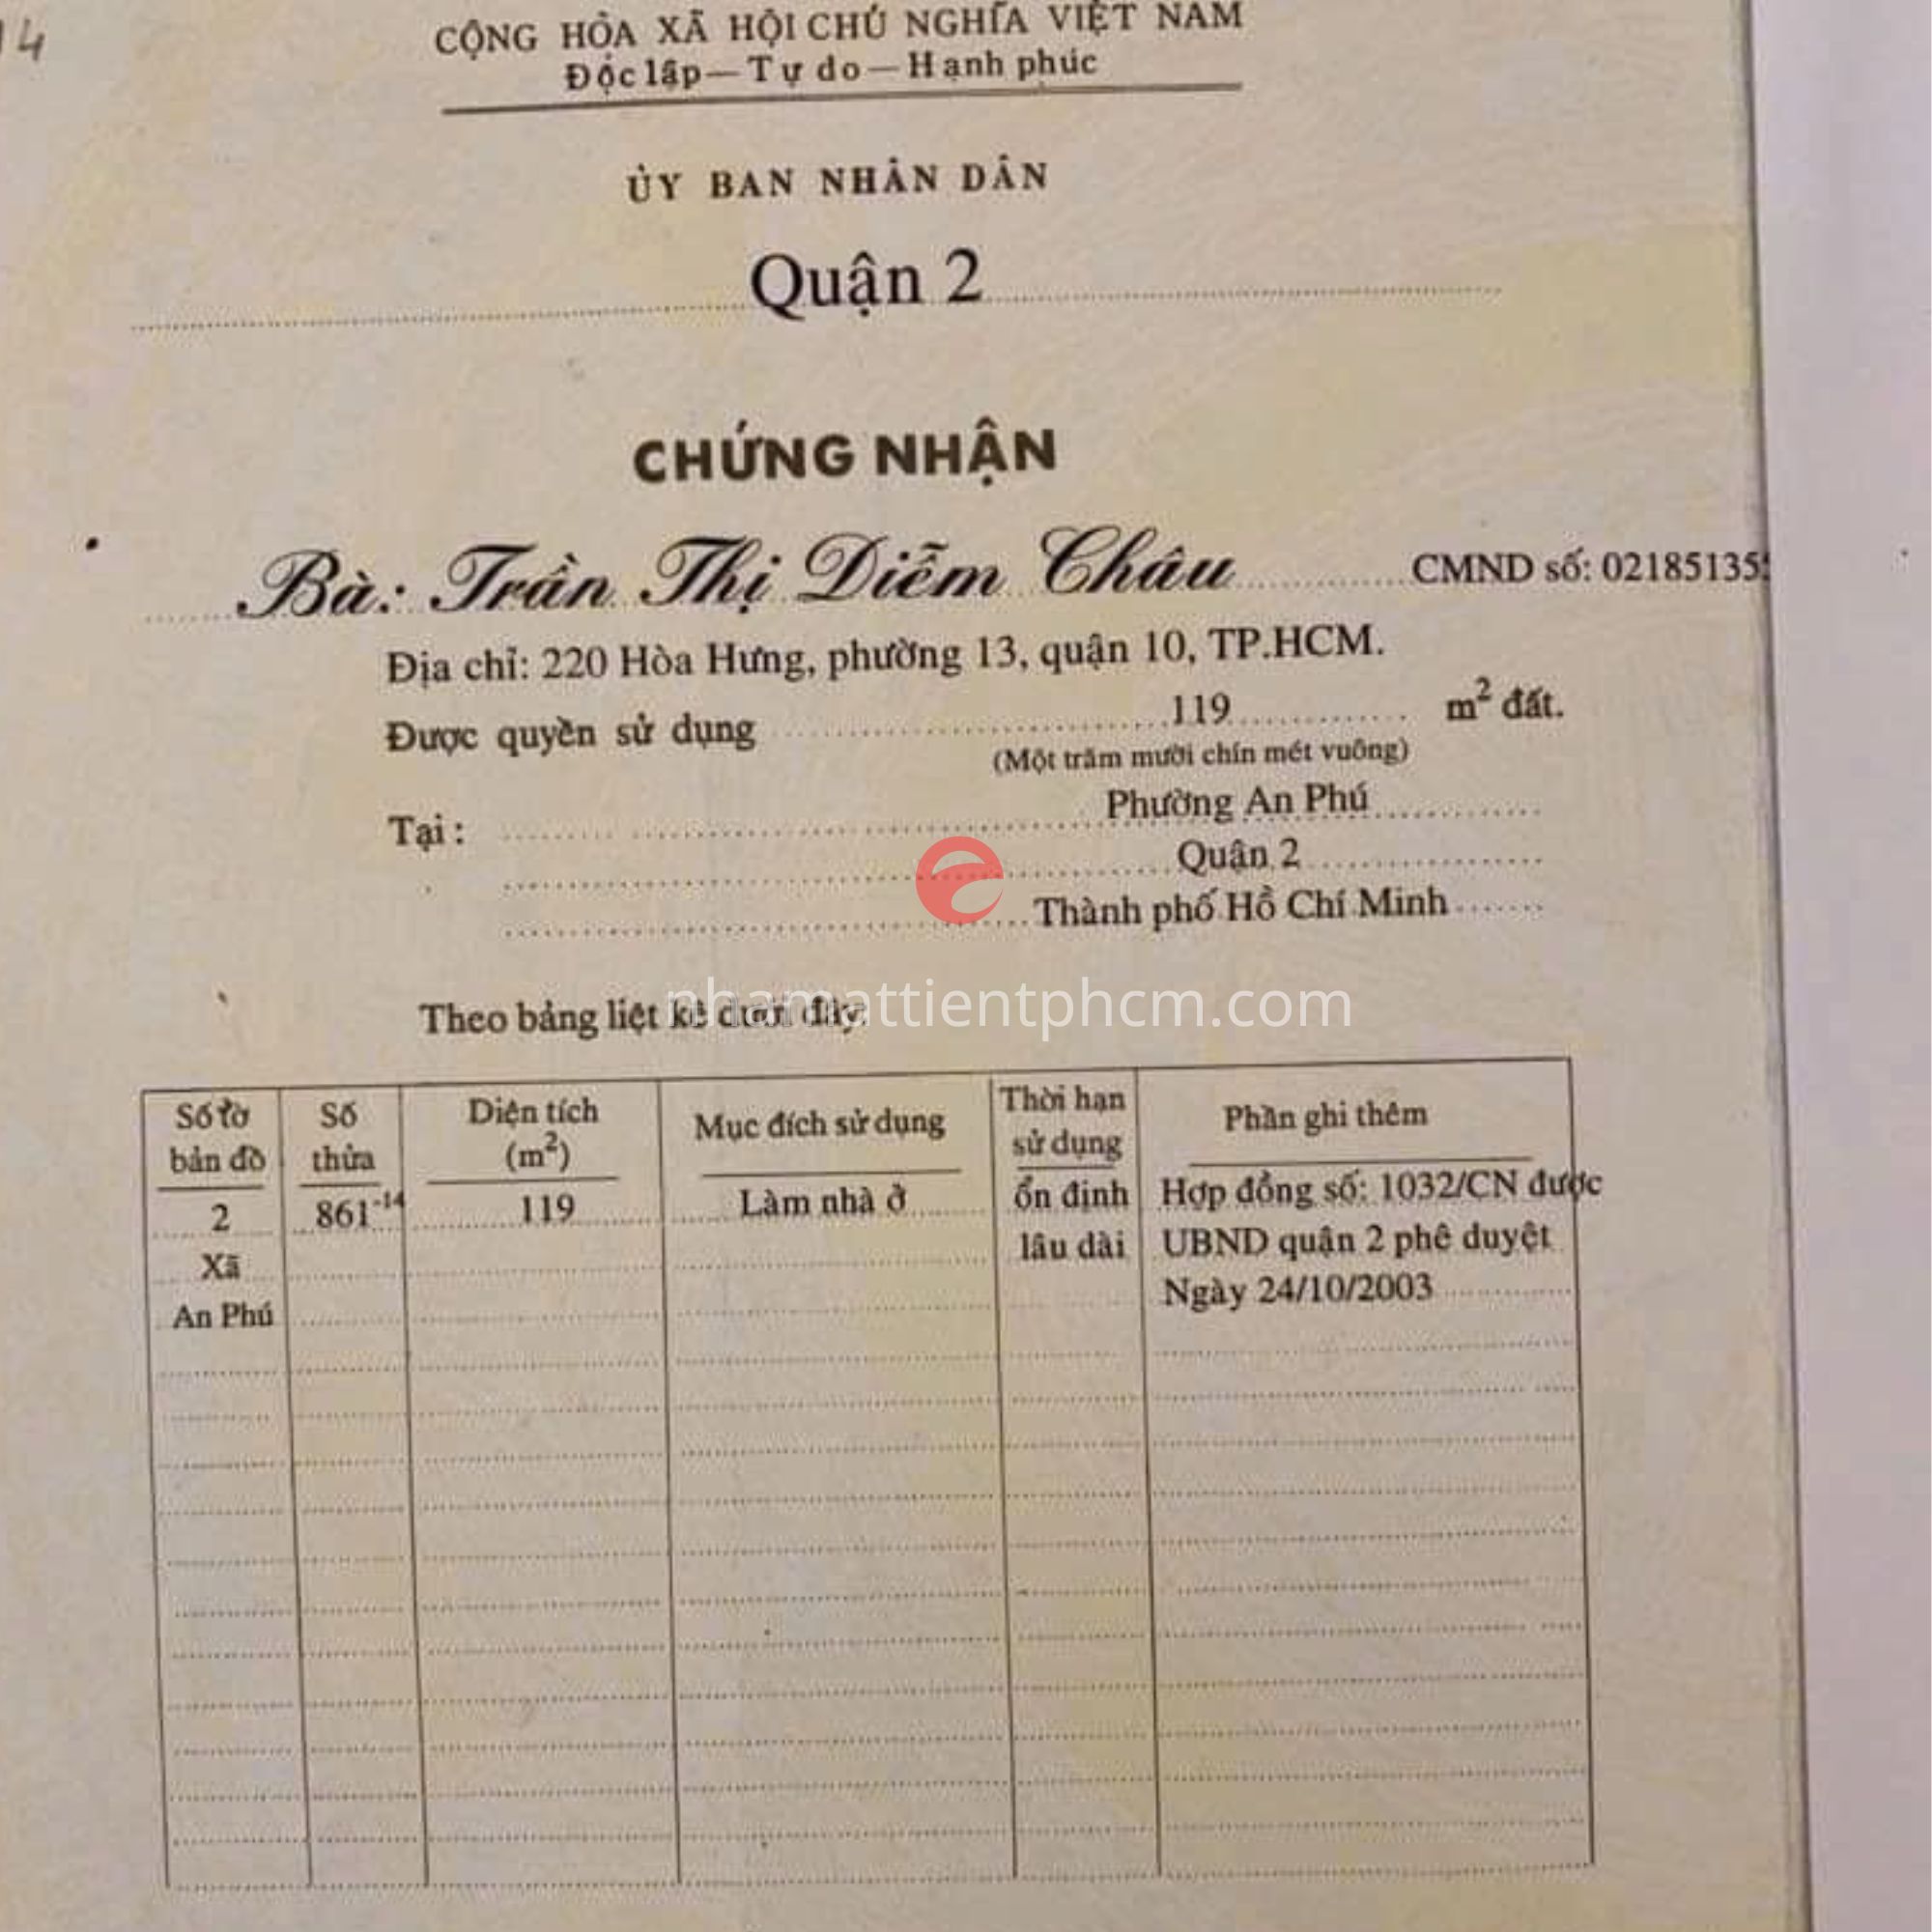 14
CỘNG HÒA XÃ HỘI CHỦ NGHĨA VIỆT NAM
Độc lập — Tự do — Hạnh phúc
ỦY BAN NHÂN DÂN
Quận 2
CHỨNG NHẬN
Bà: Trần Thị Diễm Châu CMND số: 02185135
Địa chỉ: 220 Hòa Hưng, phường 13, quận 10, TP.HCM.
Được quyền sử dụng 119 m² đất.
(Một trăm mười chín mét vuông)
Tại : Phường An Phú
Quận 2
Thành phố Hồ Chí Minh
nhamattientphcm.com
Theo bảng liệt kê dưới đây:
Số tờ bản đồ
Số thửa
Diện tích (m²)
Mục đích sử dụng
Thời hạn sử dụng
Phần ghi thêm
2 861-14 119 Làm nhà ở ổn định Hợp đồng số: 1032/CN được
Xã lâu dài UBND quận 2 phê duyệt
An Phú Ngày 24/10/2003